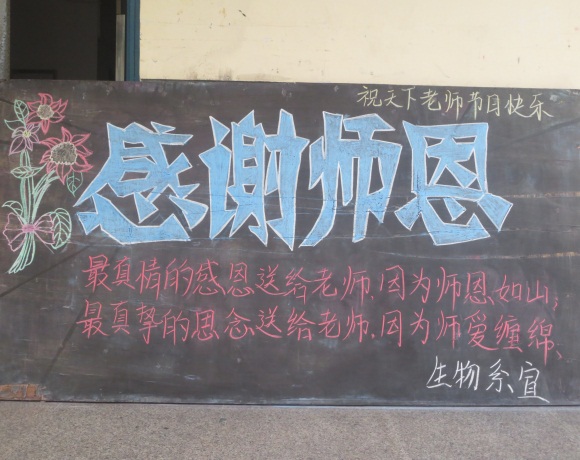 祝天下老师节日快乐
感谢师恩
最真情的感恩送给老师,因为师恩如山;
最真挚的思念送给老师,因为师爱缠绵、
生物系宣